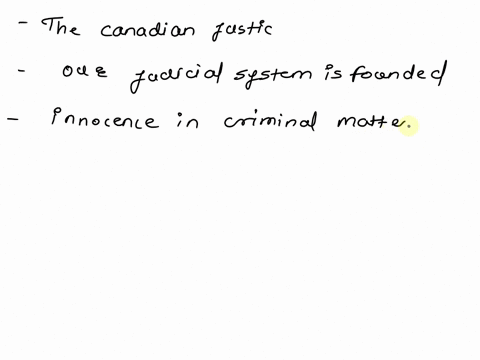 - The canadian justic
- our judicial system is founded
- innocence in criminal matte.